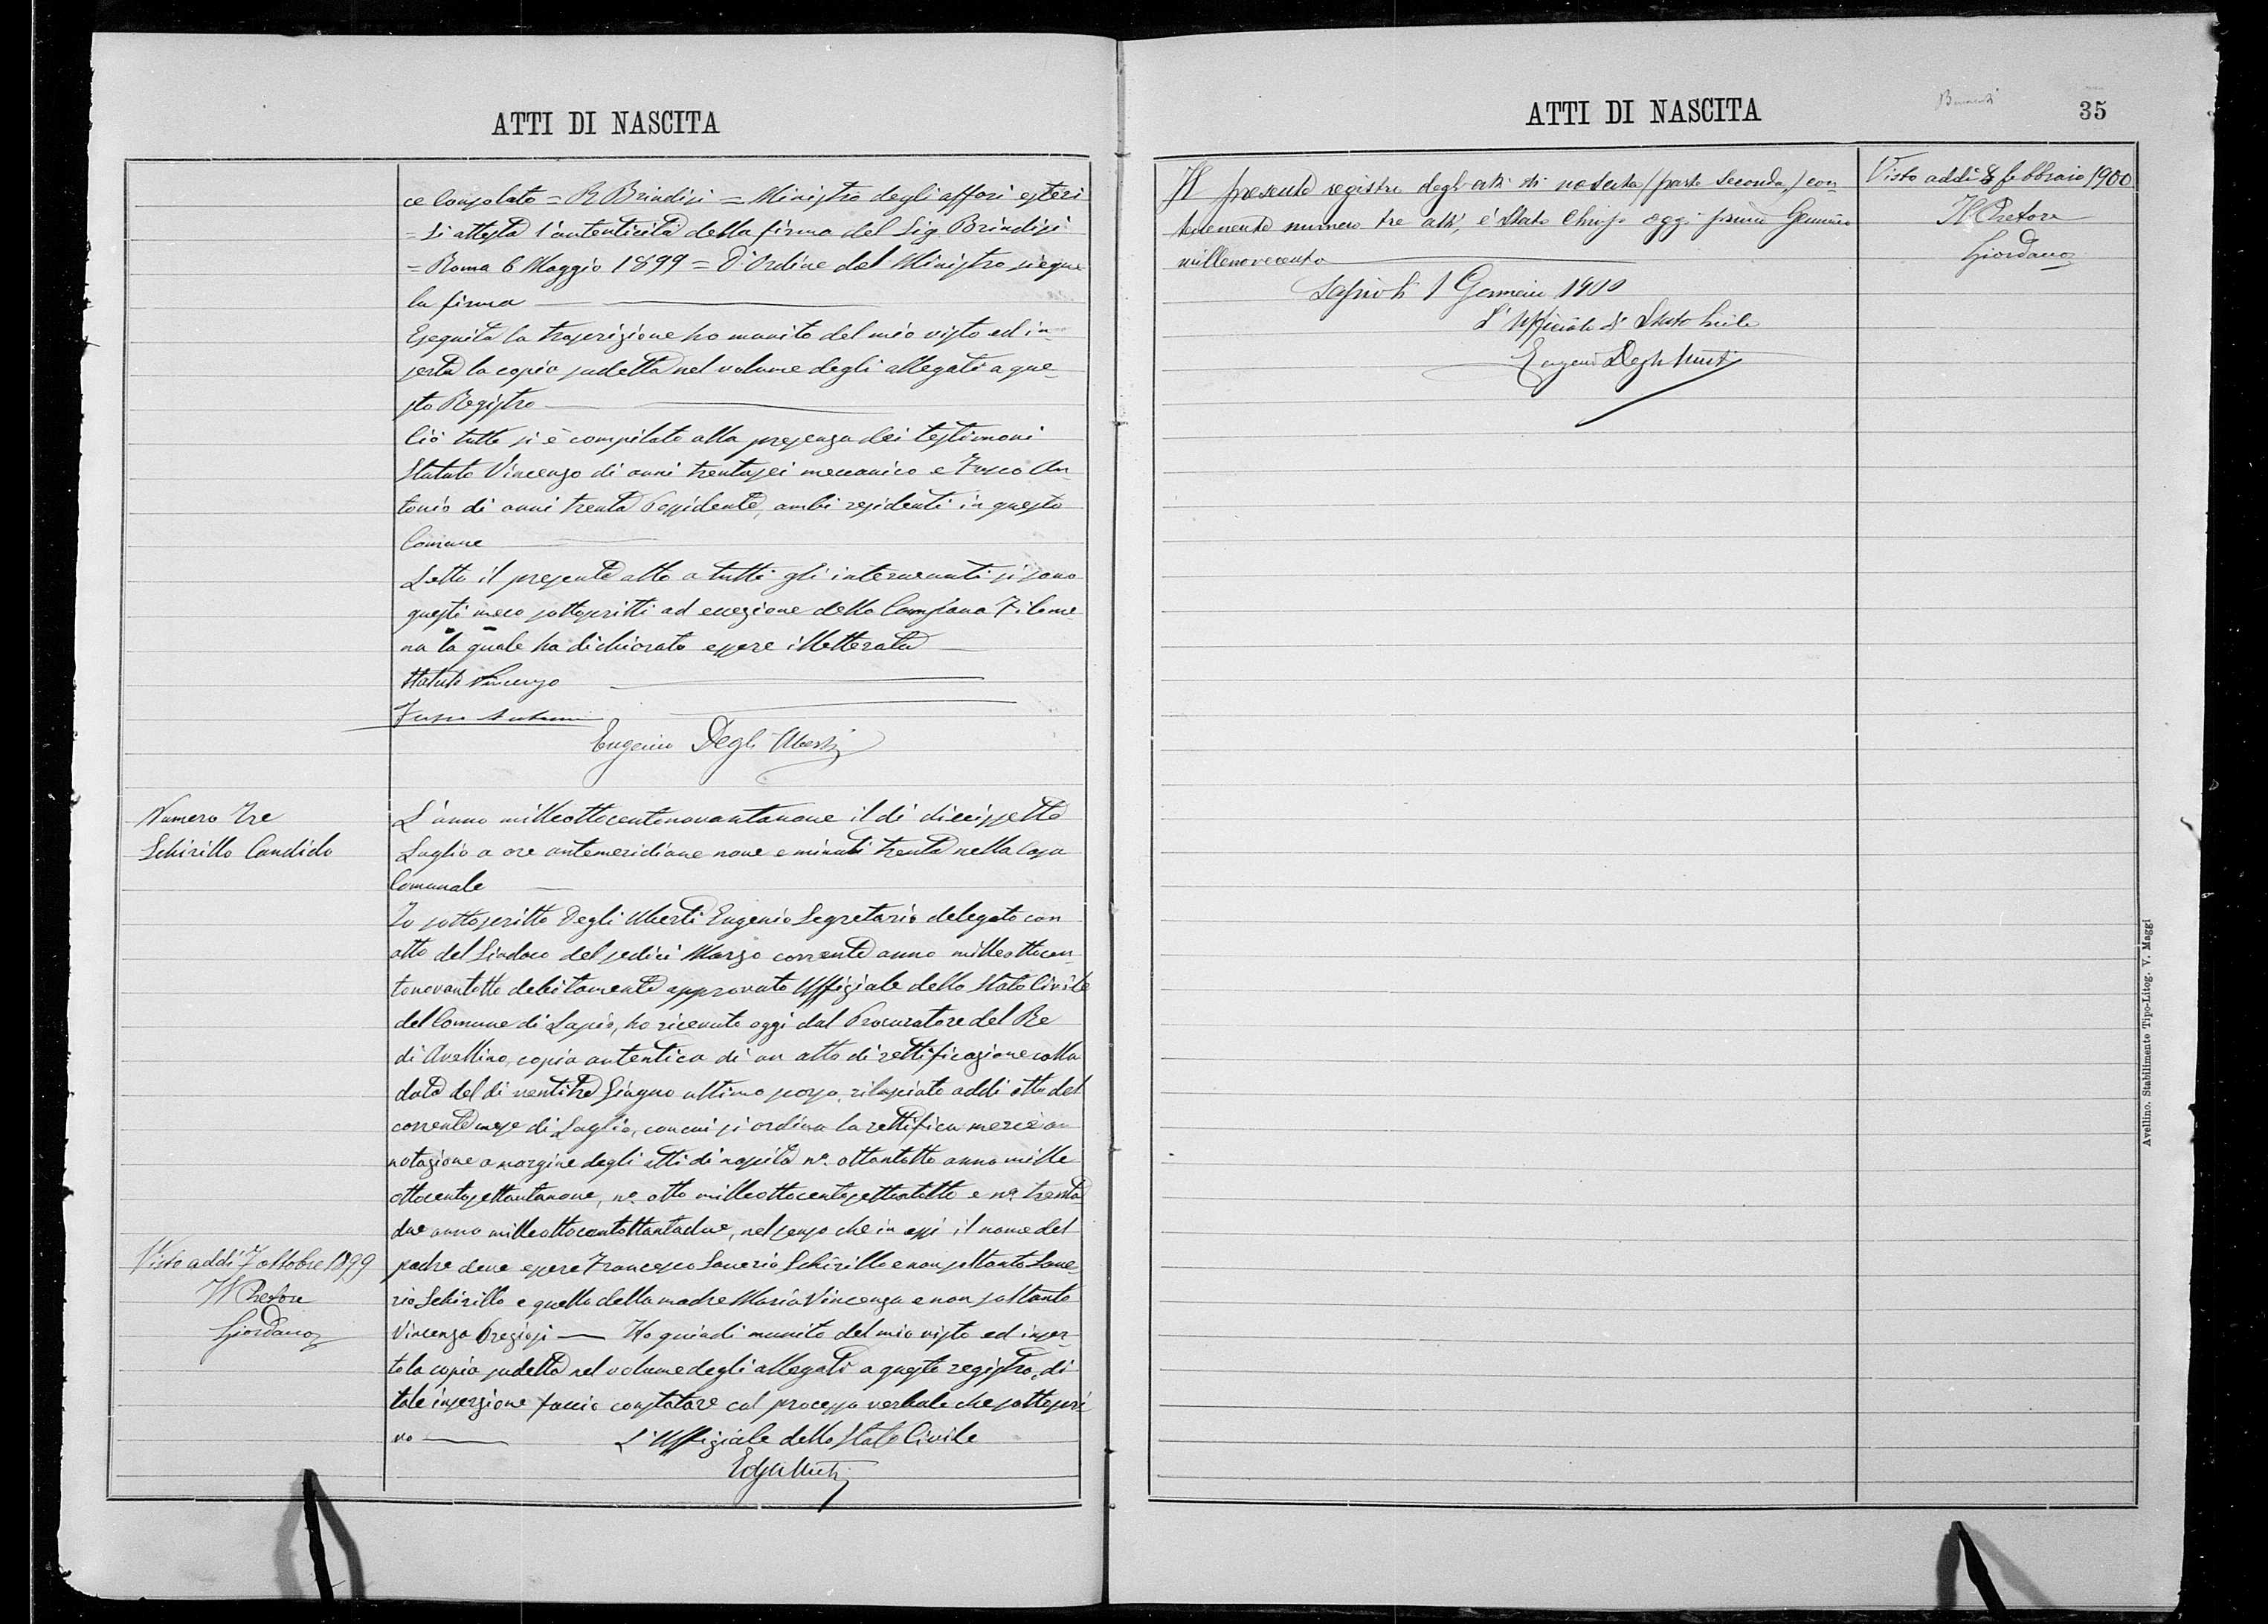 ATTI DI NASCITA
ce Consolato = R. Brindisi = Ministro degli affari esteri
= Si attesta l'autenticità della firma del Sig. Brindisi
= Roma 6 Maggio 1899 = D'Ordine del Ministro siegue
la firma
Eseguita la trascrizione ho munito del mio visto ed in-
serta la copia sudetta nel volume degli allegati a que-
sto Registro
Ciò tutto si è compilato alla presenza dei testimoni
Statuto Vincenzo di anni trentasei meccanico e Fusco An-
tonio di anni trenta Possidente, ambi residenti in questo
Comune
Letto il presente atto a tutti gli intervenuti si sono
questi meco sottoscritti ad eccezione della Campana Filome
na la quale ha dichiarato essere illetterata
Statuto Vincenzo
Fusco Antonio
Eugenio Degli Uberti
Numero Tre
Schirillo Candido
L'anno milleottocentonovantanove il dì diecissette
Luglio a ore antemeridiane nove e minuti trenta nella Casa
Comunale
Io sottoscritto Degli Uberti Eugenio Segretario delegato con
atto del Sindaco del sedici Marzo corrente anno milleottocen-
tonovantotto debitamente approvato Uffiziale dello Stato Civile
del Comune di Lapio, ho ricevuto oggi dal Procuratore del Re
di Avellino, copia autentica di un atto di rettificazione colla
data del dì ventitre Giugno ultimo scorso, rilasciato addi otto del
corrente mese di Luglio, con cui si ordina la rettifica mercè an
notazione a margine degli atti di nascita n.º ottantotto anno mille
ottocentosettantanove, n.º otto milleottocentosettantotto e n.º trenta
due anno milleottocentottantadue, nel senso che in essi il nome del
padre deve essere Francesco Saverio Schirillo e non soltanto Save-
rio Schirillo e quello della madre Maria Vincenza e non soltanto
Vincenza Pregiosi — Ho quindi munito del mio visto ed inser-
to la copia sudetta nel volume degli allegati a questo registro, di
tale inserzione faccio constatare col processo verbale che sottoscri
vo L'Uffiziale dello Stato Civile
Visto addì 7 ottobre 1899
Il Pretore
Giordano
ATTI DI NASCITA
35
Il presente registro degli atti di nascita (parte seconda) con-
tenente numero tre atti, è stato chiuso oggi primo Gennaio
millenovecento
Lapio li 1 Gennaio 1900
L'Ufficiale di Stato Civile
Eugenio Degli Uberti
Visto addì 8 febbraio 1900
Il Pretore
Giordano
Avellino. Stabilimento Tipo-Litog. V. Maggi